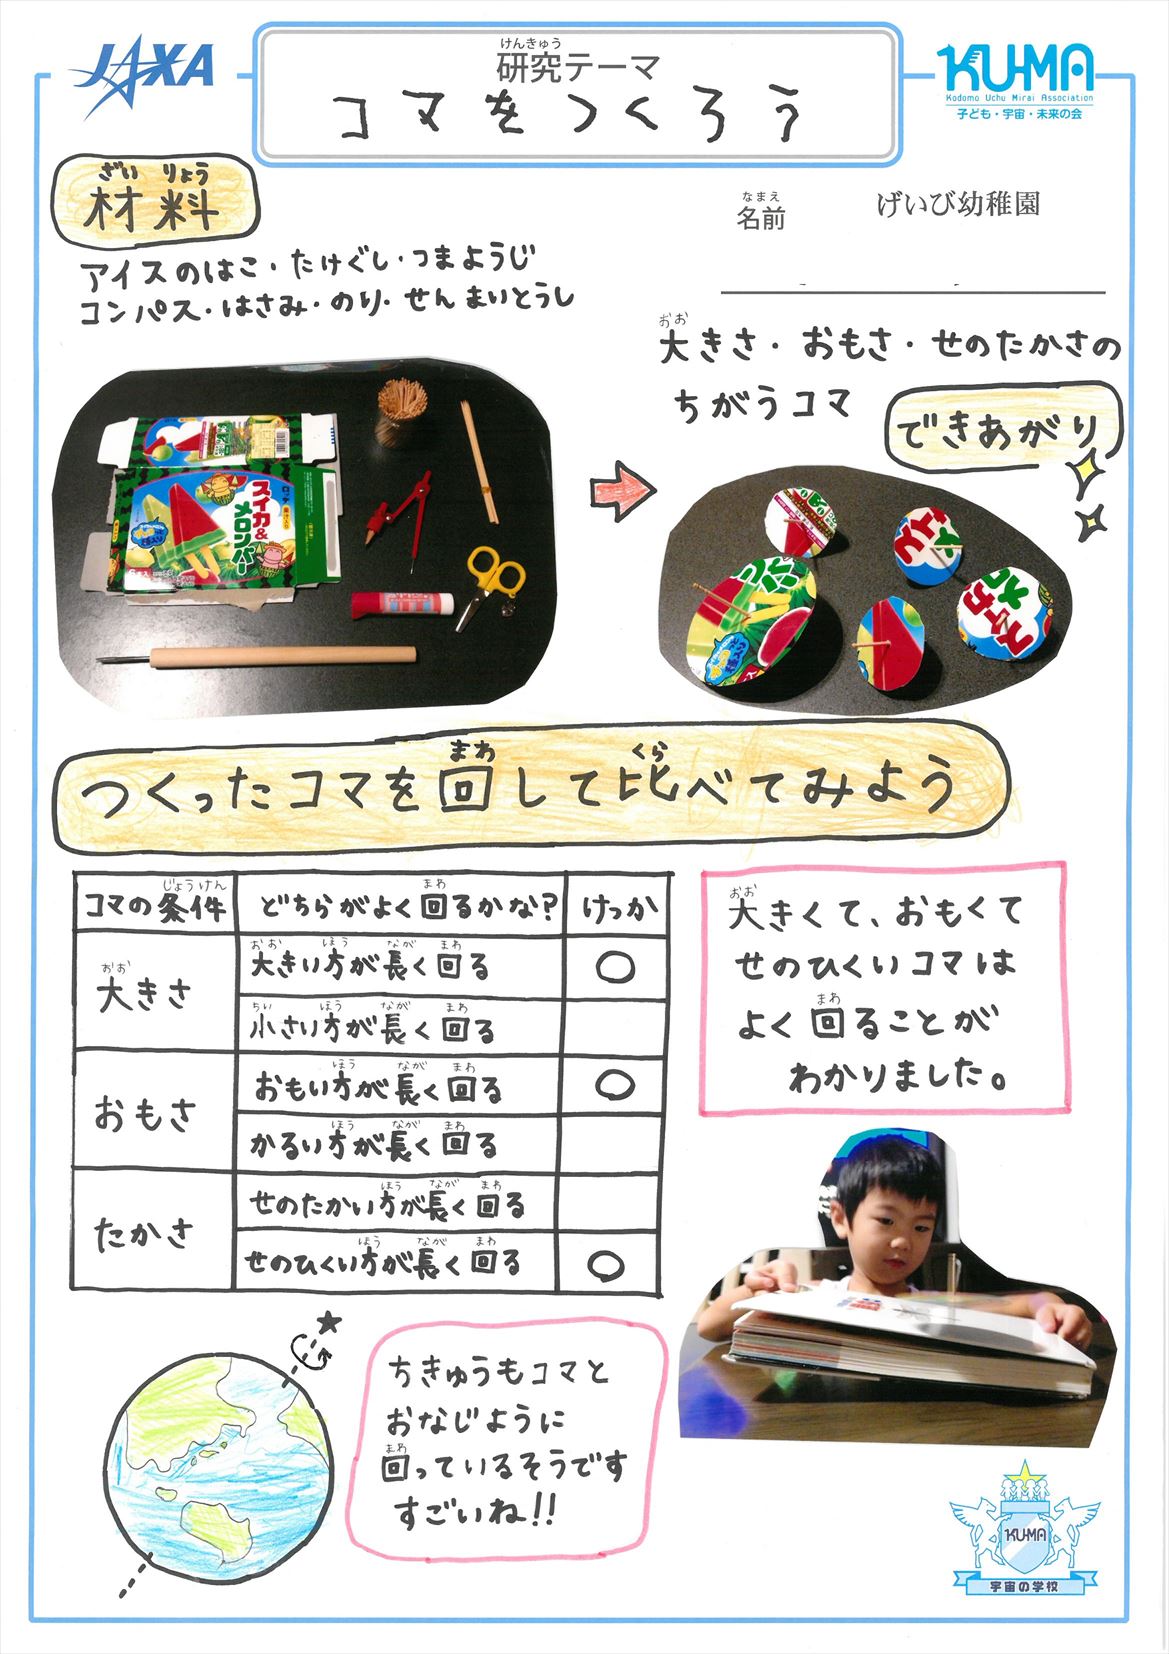 JAXA
けんきゅう
研究テーマ
コマをつくろう
KU-MA
Kodomo Uchu Mirai Association
子ども・宇宙・未来の会
ざい りょう
材料
なまえ
名前 げいび幼稚園
アイスのはこ・たけぐし・つまようじ
コンパス・はさみ・のり・せんまいとうし
おお
大きさ・おもさ・せのたかさの
ちがうコマ
できあがり
ロッテ
スイカ&
メロンバー
まわ くら
つくったコマを回して比べてみよう
じょうけん まわ
コマの条件 どちらがよく回るかな? けっか
おお
大きさ
おお ほう なが まわ
大きい方が長く回る ○
ちい ほう なが まわ
小さい方が長く回る
おもさ
ほう なが まわ
おもい方が長く回る ○
ほう なが まわ
かるい方が長く回る
たかさ
ほう なが まわ
せのたかい方が長く回る
ほう なが まわ
せのひくい方が長く回る ○
おお
大きくて、おもくて
せのひくいコマは
まわ
よく回ることが
わかりました。
ちきゅうもコマと
おなじように
まわ
回っているそうです
すごいね!!
KU-MA
宇宙の学校